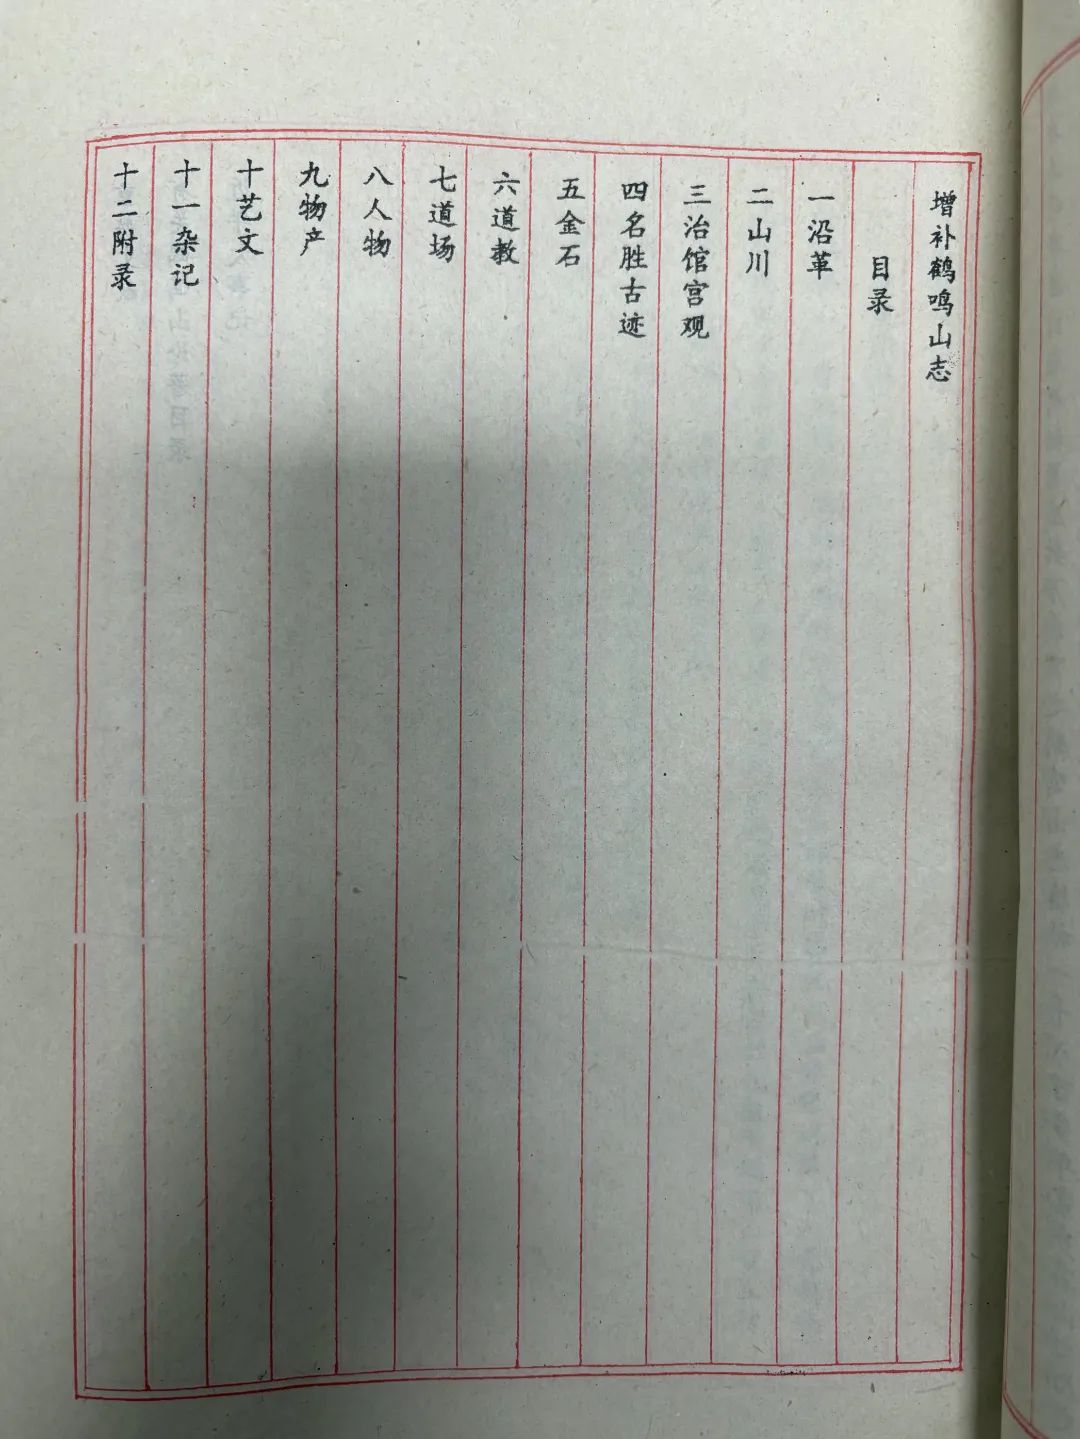 增补鹤鸣山志
目录
一沿革
二山川
三治馆宫观
四名胜古迹
五金石
六道教
七道场
八人物
九物产
十艺文
十一杂记
十二附录